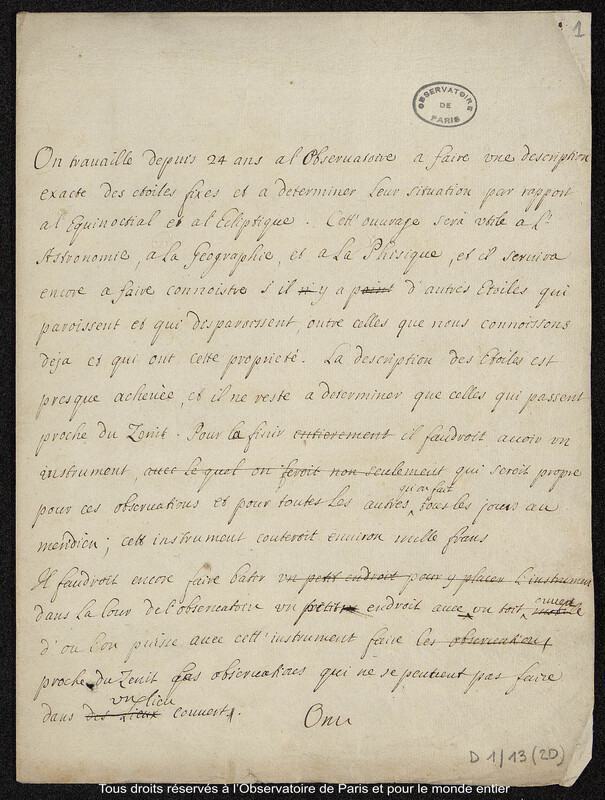 1
OBSERVATOIRE
DE
PARIS
On travaille depuis 24 ans a l'Observatoire a faire vne description
exacte des etoiles fixes et a determiner leur situation par rapport
a l'Equinoctial et a l'Ecliptique. Cett' ouvrage sera vtile a L'
Astronomie, a la Geographie, et a La Phisique, et il servira
encore a faire connoistre s'il n y a point d'autres Etoiles qui
paroissent et qui desparoessent, outre celles que nous connoissons
deja et qui ont cette proprieté. La description des Etoiles est
presque acheuée, et il ne reste a determiner que celles qui passent
proche du Zenit. Pour la finir entierement il faudroit auoir vn
instrument, auec le quel on feroit non seulement qui seroit propre
pour ces observations et pour toutes les autres qu'on fait tous les jours au
meridien; cett instrument couteroit environ mille frans
Il faudroit encore faire batir vn petit endroit pour y placer L'instrument
dans la Cour de l'observatoire vn petit endroit auec vn toit ouvert
d'ou l'on puisse auec cett' instrument faire les observations
proche du Zenit des observations qui ne se peuuent pas faire
dans des lieux vn lieu couvert.
Onu
D 1/13 (2D)
Tous droits réservés à l'Observatoire de Paris et pour le monde entier